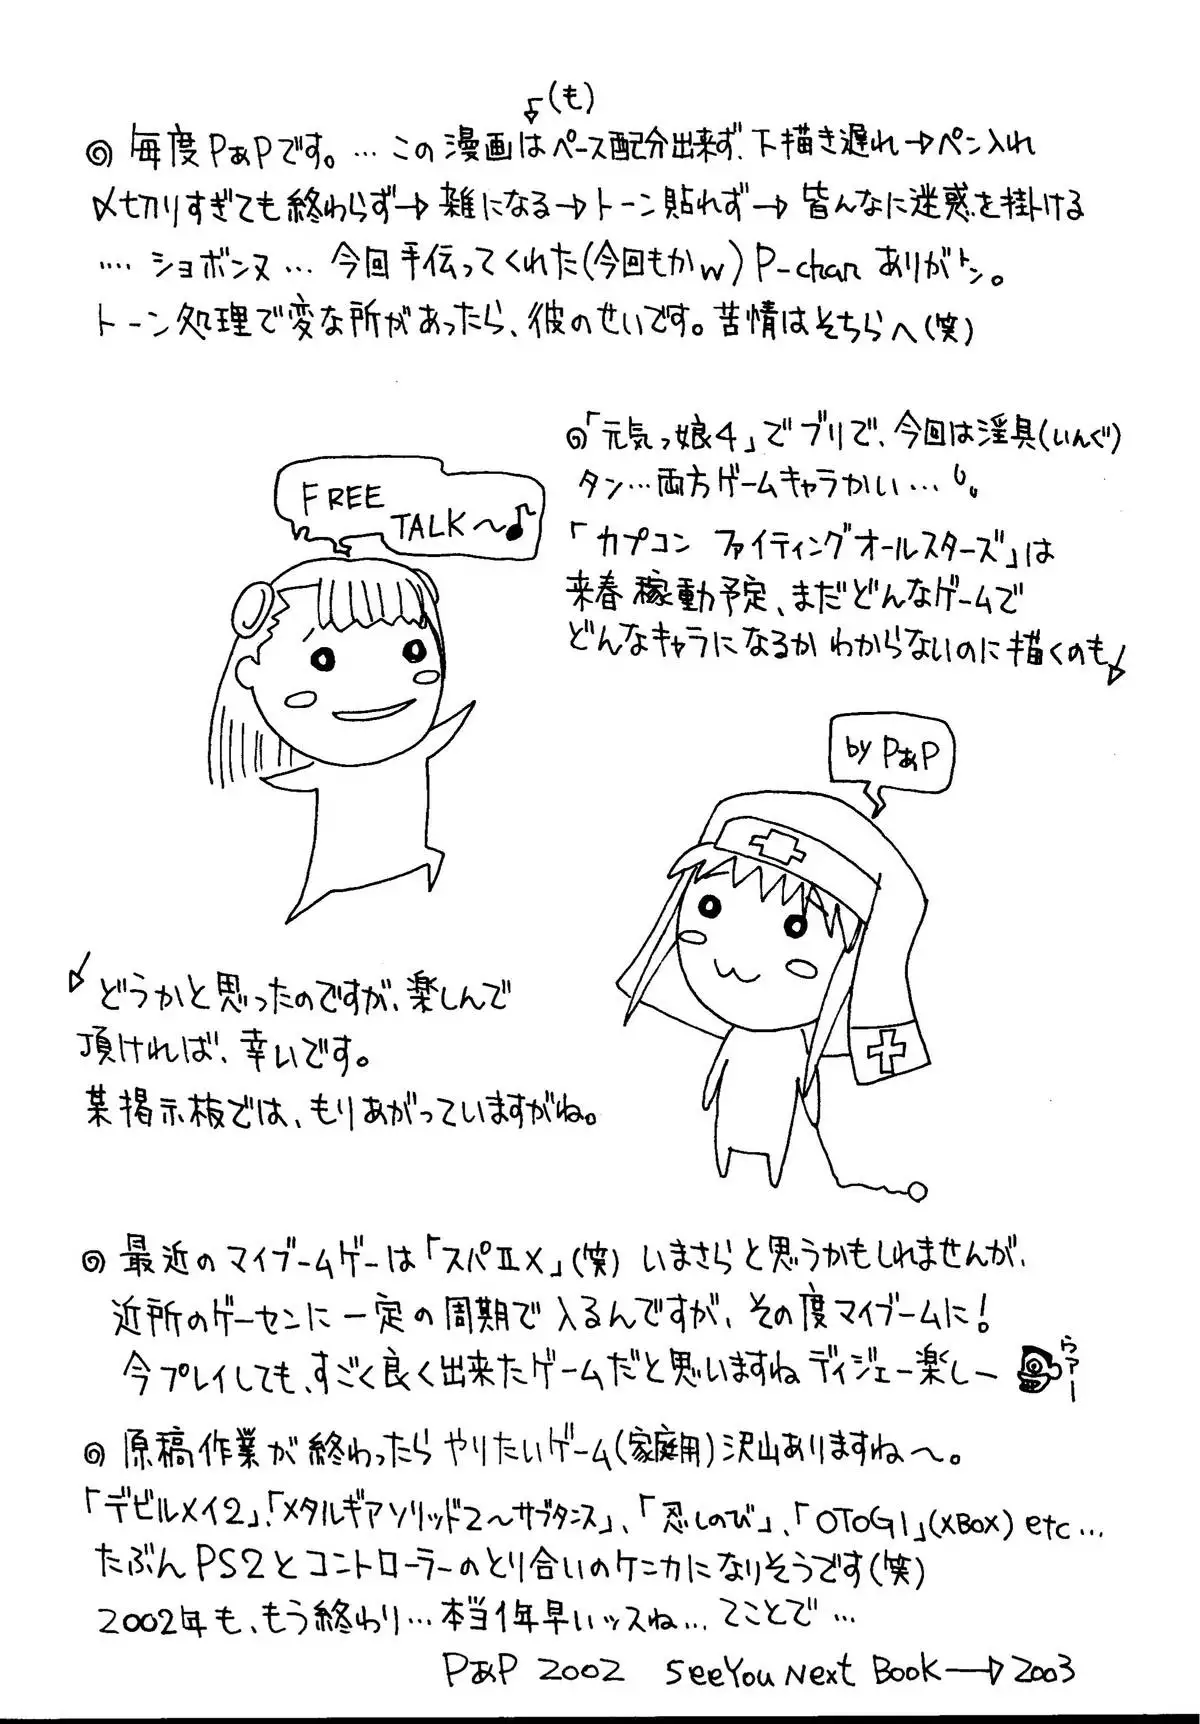 (も)
◎毎度PあPです。…この漫画はペース配分出来ず、下描き遅れ→ペン入れ
〆切りすぎても終わらず→雑になる→トーン貼れず→皆んなに迷惑を掛ける
…. ショボンヌ… 今回手伝ってくれた(今回もかw) P-chan ありがトン。
トーン処理で変な所があったら、彼のせいです。苦情はそちらへ(笑)
FREE
TALK〜♪
◎「元気っ娘4」でブリで、今回は淫具(いんぐ)
タン…両方ゲームキャラかい…。
「カプコン ファイティングオールスターズ」は
来春稼動予定、まだどんなゲームで
どんなキャラになるかわからないのに描くのも↓
by PあP
↓どうかと思ったのですが、楽しんで
頂ければ、幸いです。
某掲示板では、もりあがっていますがね。
◎最近のマイブームゲーは「スパⅡX」(笑)いまさらと思うかもしれませんが、
近所のゲーセンに一定の周期で入るんですが、その度マイブームに!
今プレイしても、すごく良く出来たゲームだと思いますね ディジェー楽しー
ウァー
◎原稿作業が終わったらやりたいゲーム(家庭用)沢山ありますね〜。
「デビルメイ2」、「メタルギアソリッド2〜サブタンス」、「忍しのび」、「OTOGI」(XBOX) etc…
たぶんPS2とコントローラーのとり合いのケンカになりそうです(笑)
2002年も、もう終わり…本当1年早いッスね…てことで…
PあP 2002 see You Next Book→2003